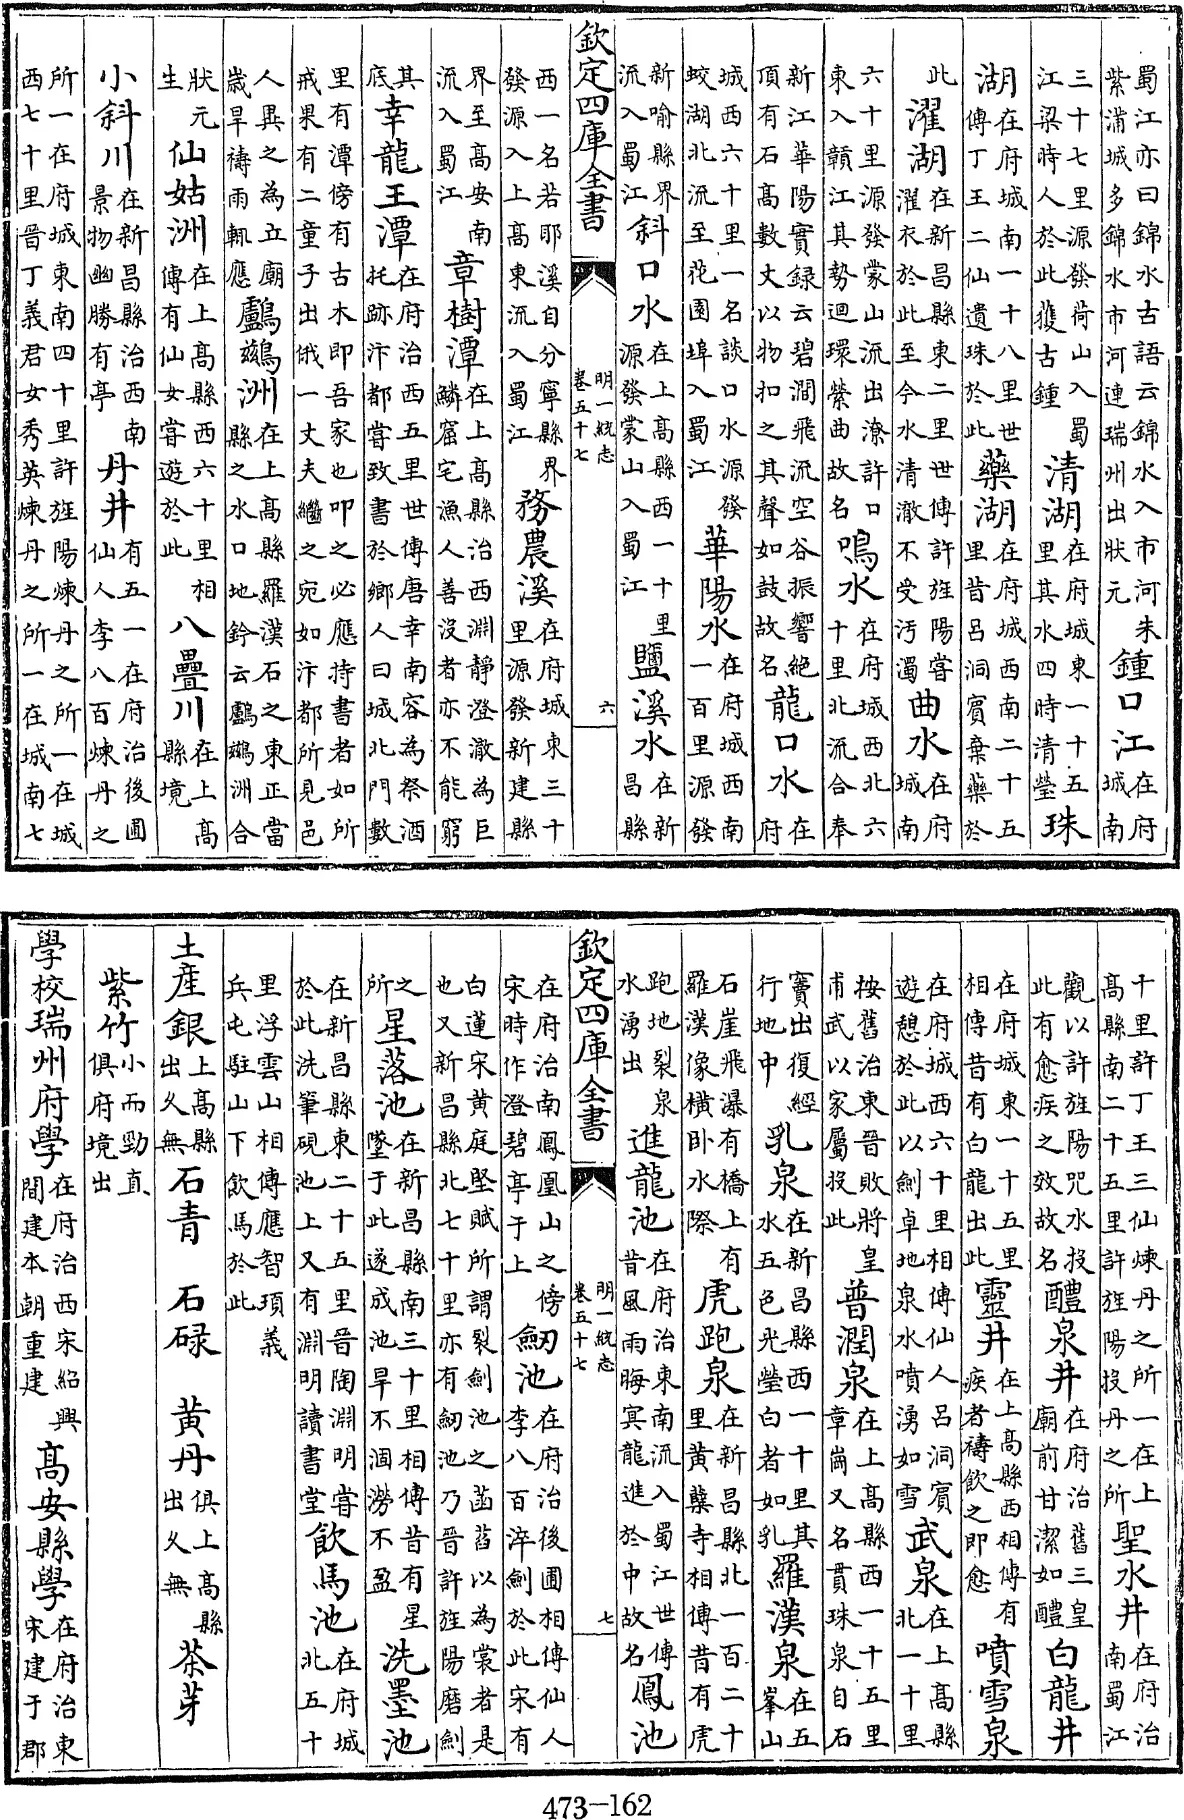 蜀江亦曰錦水古語云錦水入市河朱紫蒲城多錦水市河連瑞州出狀元鍾口江在府城南
三十七里源發荷山入蜀江梁時人於此獲古鍾清湖在府城東一十五里其水四時清瑩珠
湖在府城南一十八里世傳丁王二仙遺珠於此藥湖在府城西南二十五里昔呂洞賓棄藥於
此濯湖在新昌縣東二里世傳許旌陽嘗濯衣於此至今水清澈不受汚濁曲水在府城南
六十里源發蒙山流出潦許口東入贛江其勢迴環縈曲故名鳴水在府城西北六十里北流合奉
新江華陽實録云碧澗飛流空谷振響絶頂有石髙數丈以物扣之其聲如鼓故名龍口水在府
城西六十里一名談口水源發蛟湖北流至花園埠入蜀江華陽水在府城西南一百里源發
新喻縣界流入蜀江斜口水在上髙縣西一十里源發蒙山入蜀江鹽溪水在新昌縣
欽定四庫全書 明一統志 卷五十七 六
西一名若耶溪自分寧縣界發源入上髙東流入蜀江務農溪在府城東三十里源發新建縣
界至髙安南流入蜀江章樹潭在上髙縣治西淵靜澄澈為巨鱗窟宅漁人善沒者亦不能窮
其底幸龍王潭在府治西五里世傳唐幸南容為祭酒托跡汴都嘗致書於鄉人曰城北門數
里有潭傍有古木即吾家也叩之必應持書者如所戒果有二童子出俄一丈夫繼之宛如汴都所見邑
人異之為立廟嵗旱禱雨輒應鸕鷀洲在上髙縣羅漢石之東正當縣之水口地鈐云鸕鷀洲合
狀元生仙姑洲在上髙縣西六十里相傳有仙女嘗遊於此八疊川在上髙縣境
小斜川在新昌縣治西南景物幽勝有亭丹井有五一在府治後圃仙人李八百煉丹之
所一在府城東南四十里許旌陽煉丹之所一在城西七十里晉丁義君女秀英煉丹之所一在城南七
十里許丁王三仙煉丹之所一在上髙縣南二十五里許旌陽投丹之所聖水井在府治南蜀江
觀以許旌陽咒水投此有愈疾之效故名醴泉井在府治舊三皇廟前甘潔如醴白龍井
在府城東一十五里相傳昔有白龍出此靈井在上髙縣西相傳有疾者禱飲之即愈噴雪泉
在府城西六十里相傳仙人呂洞賓遊憩於此以劍卓地泉水噴湧如雪武泉在上髙縣北一十里
按舊治東晉敗將皇甫武以家屬投此普潤泉在上髙縣西一十五里章崗又名貫珠泉自石
竇出復經行地中乳泉在新昌縣西一十里其水五色光瑩白者如乳羅漢泉在五峯山
石崖飛瀑有橋上有羅漢像橫卧水際虎跑泉在新昌縣北一百二十里黃蘗寺相傳昔有虎
跑地裂泉水湧出進龍池在府治東南流入蜀江世傳昔風雨晦冥龍進於中故名鳳池
欽定四庫全書 明一統志 卷五十七 七
在府治南鳳凰山之傍宋時作澄碧亭于上劒池在府治後圃相傳仙人李八百淬劍於此宋有
白蓮宋黄庭堅賦所謂裂劍池之菡萏以為裳者是也又新昌縣北七十里亦有劒池乃晉許旌陽磨劍
之所星落池在新昌縣南三十里相傳昔有星墜于此遂成池旱不涸澇不盈洗墨池
在新昌縣東二十五里晉陶淵明嘗於此洗筆硯池上又有淵明讀書堂飲馬池在府城北五十
里浮雲山相傳應智頊義兵屯駐山下飲馬於此
土産銀上髙縣出久無石青 石碌 黄丹俱上髙縣出久無茶芽
紫竹小而勁直俱府境出
學校瑞州府學在府治西宋紹興間建本朝重建髙安縣學在府治東宋建于郡
473—162